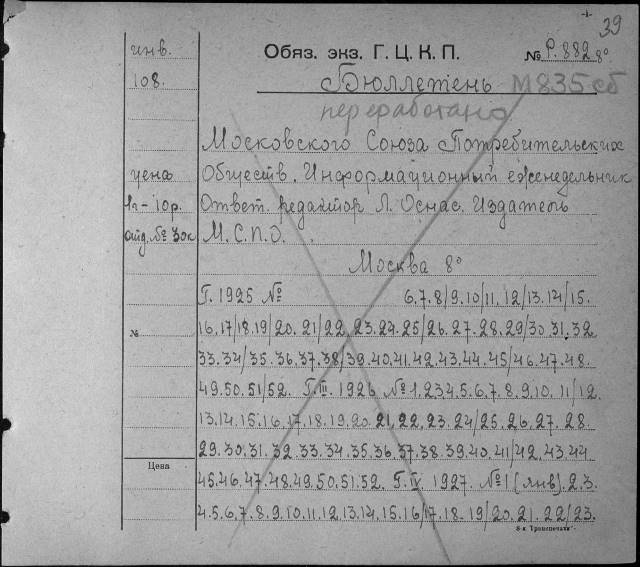 -1- 39
инв. Обяз. экз. Г. Ц. К. П. № Р.882 8°
108. Бюллетень М835сб
переработано
Московского Союза Потребительских
цена Обществ. Информационный еженедельник
1г-10р. Ответ. редактор Л. Оснас. Издатель
отд. № 30к М.С.П.О.
Москва 8°
Г. 1925 № 6.7.8/9.10/11. 12/13.14/15.
№ 16.17/18.19/20.21/22.23.24.25/26.27.28.29/30.31.32
33.34/35.36.37.38/39.40.41.42.43.44.45/46.47.48.
49.50.51/52. Г.III. 1926 № 1.2.3.4.5.6.7.8.9.10.11/12.
13.14.15.16.17.18.19.20.21.22.23.24/25.26.27.28
29.30.31.32.33.34.35.36.37.38.39.40.41/42.43.44
Цена
45.46.47.48.49.50.51.52. Г.IV 1927. №1 (янв). 2.3.
4.5.6.7.8.9.10.11.12.13.14.15.16/17.18.19/20.21.22/23.
8-я "Транспечати"